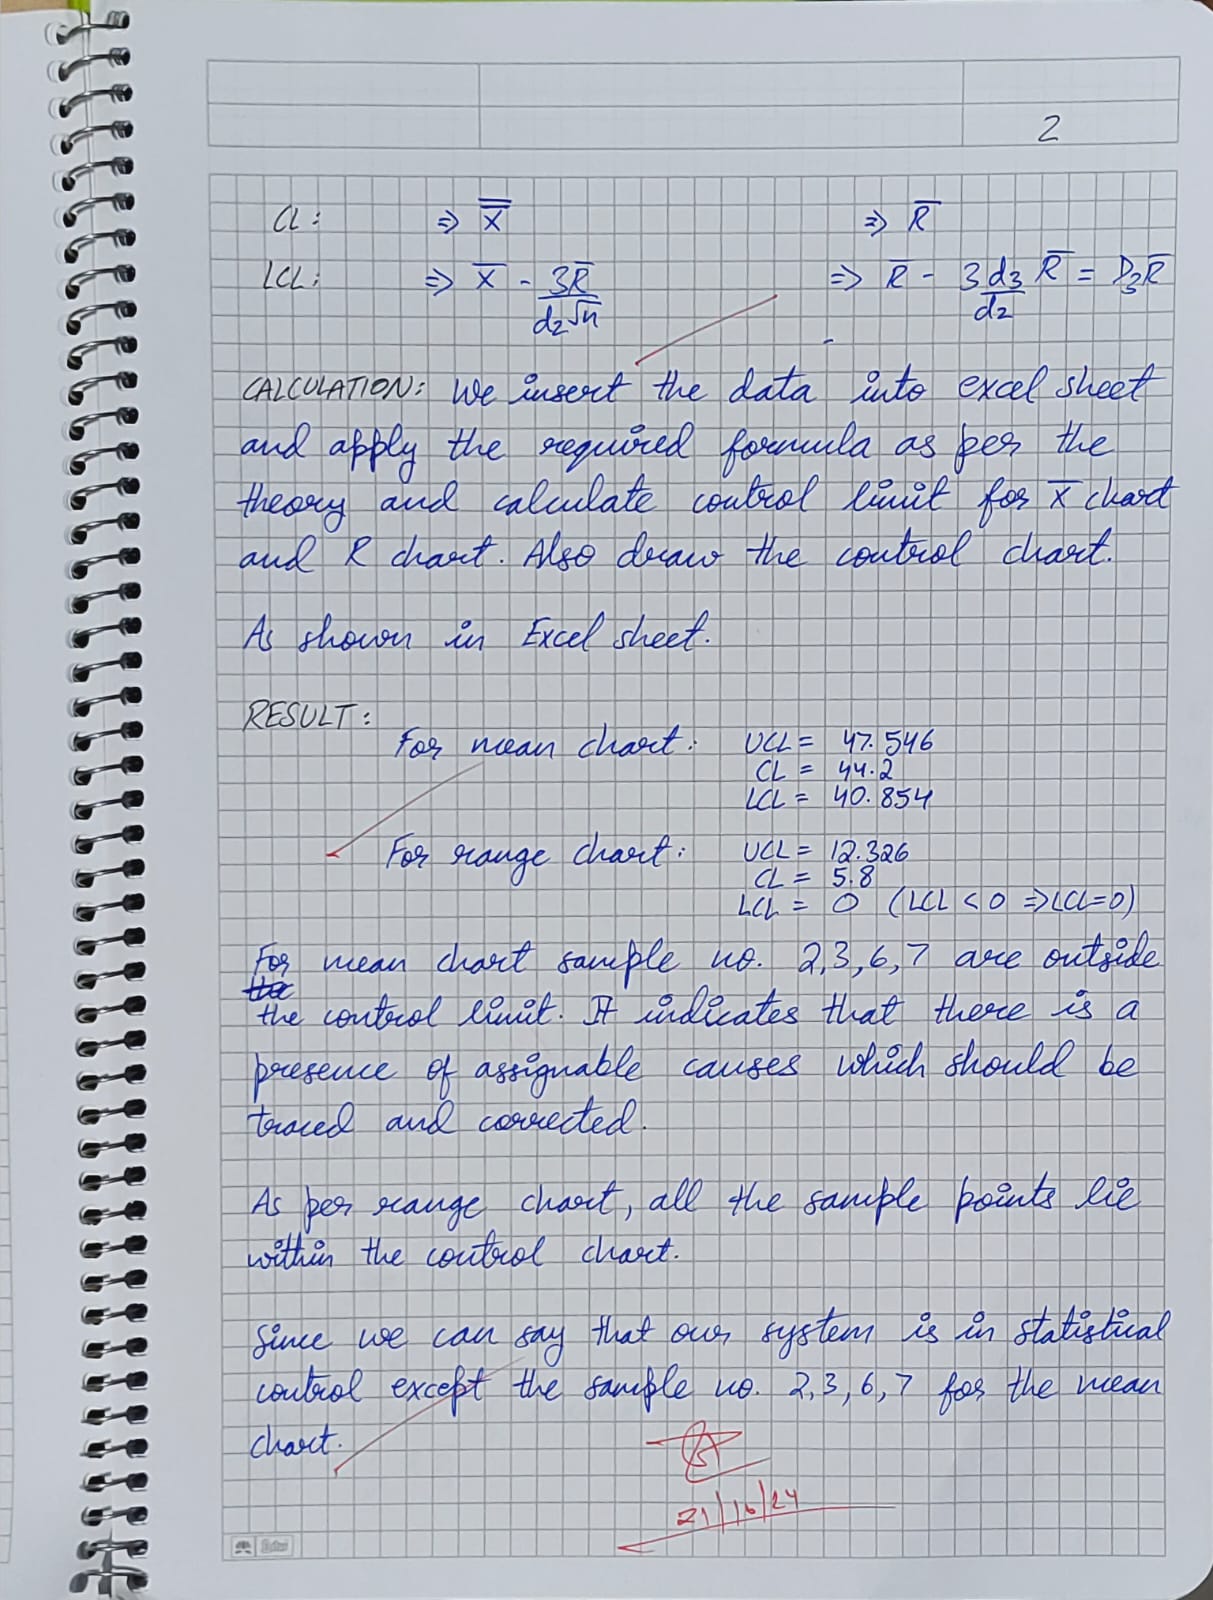 2
CL: ⇒ X̿ ⇒ R̅
LCL: ⇒ X̅ - 3R̅/d₂√n ⇒ R̅ - 3d₃/d₂ R̅ = D₃R̅
CALCULATION: We insert the data into excel sheet
and apply the required formula as per the
theory and calculate control limit for X̅ chart
and R chart. Also draw the control chart.
As shown in Excel sheet.
RESULT:
For mean chart: UCL = 47.546
CL = 44.2
LCL = 40.854
For range chart: UCL = 12.326
CL = 5.8
LCL = 0 (LCL < 0 ⇒ LCL=0)
For mean chart sample no. 2,3,6,7 are outside
the control limit. It indicates that there is a
presence of assignable causes which should be
traced and corrected.
As per range chart, all the sample points lie
within the control chart.
Since we can say that our system is in statistical
control except the sample no. 2,3,6,7 for the mean
chart.
21/10/24